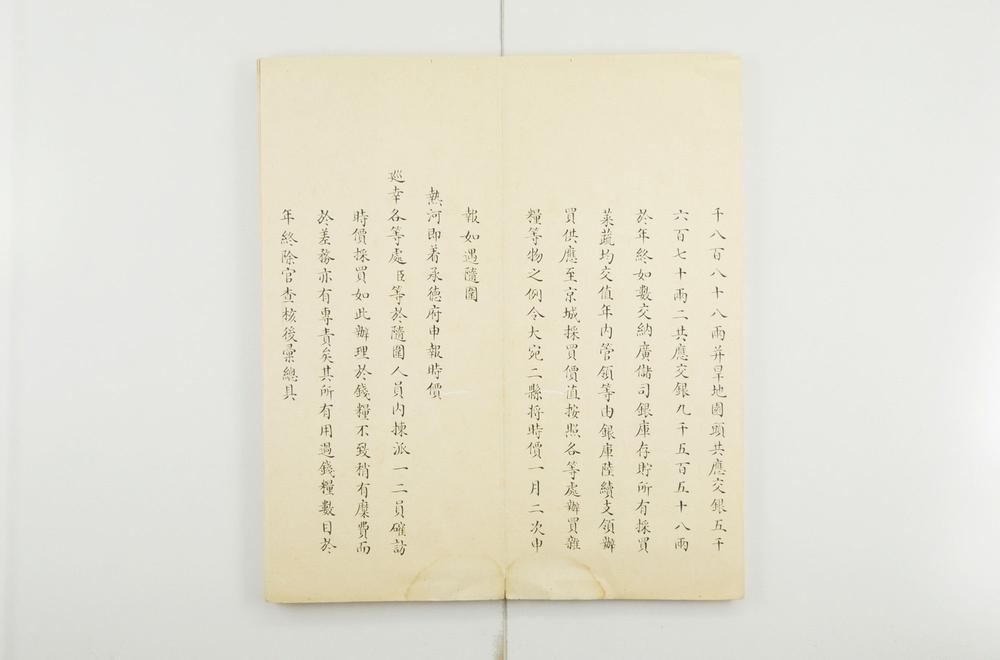 千八百八十八兩并旱地園頭共應交銀五千
六百七十兩二共應交銀九千五百五十八兩
於年終如數交納廣儲司銀庫存貯所有採買
菜蔬均交值年內管領等由銀庫陸續支領辦
買供應至京城採買價值按照各等處辦買雜
糧等物之例令大宛二縣將時價一月二次申
報如遇隨圍
熱河即著承德府申報時價
巡幸各等處臣等於隨圍人員內揀派一二員確訪
時價採買如此辦理於錢糧不致稍有糜費而
於差務亦有專責矣其所有用過錢糧數目於
年終除官查核後彙總具